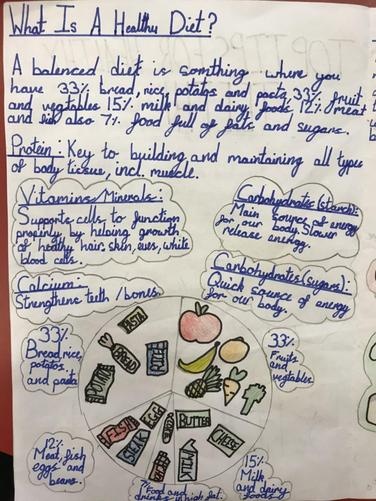 What Is A Healthy Diet?
A balenced diet is somthing where you
have 33% bread, rice, potatos and pasta 33% fruit
and vegtables 15% milk and dairy foods 12% meat
and fish also 7% food full of fats and sugars.
Protein: Key to building and maintaining all types
of body tissue, incl. muscle.
Vitamins/Minerals:
Supports cells to function
properly by helping growth
of healthy hair, skin, eyes, white
blood cells.
Carbohydrates (starch):
Main source of energy
for our body. Slower
release energy.
Calcium:
Strengthens teeth/bones.
Carbohydrates (sugars):
Quick source of energy
for our body.
33%
Bread, rice,
potatos,
and pasta
PASTA
BREAD
RICE
POTATO
33%
Fruits
and
vegetables
12%
Meat, fish
eggs and
beans.
EGG
BUTTER
CHEESE
MILK
7% Food and
drinks in high fat.
15%
Milk
and dairy
foods